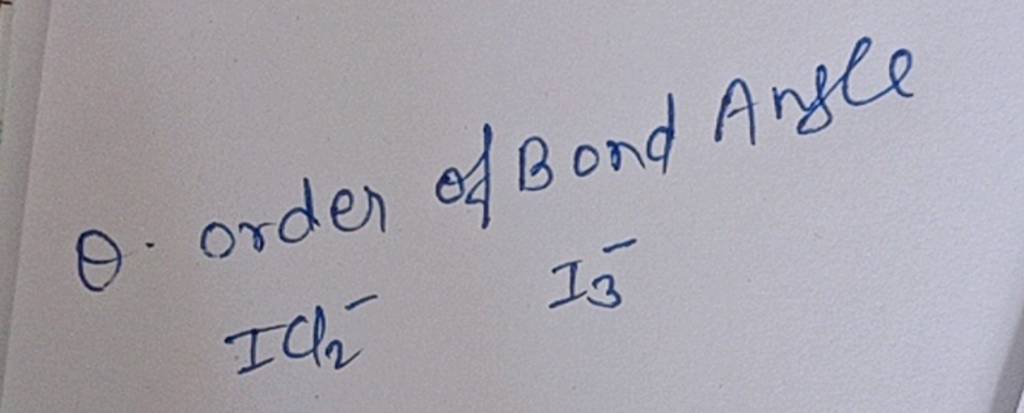 Q. order of Bond Angle
ICl₂⁻ I₃⁻